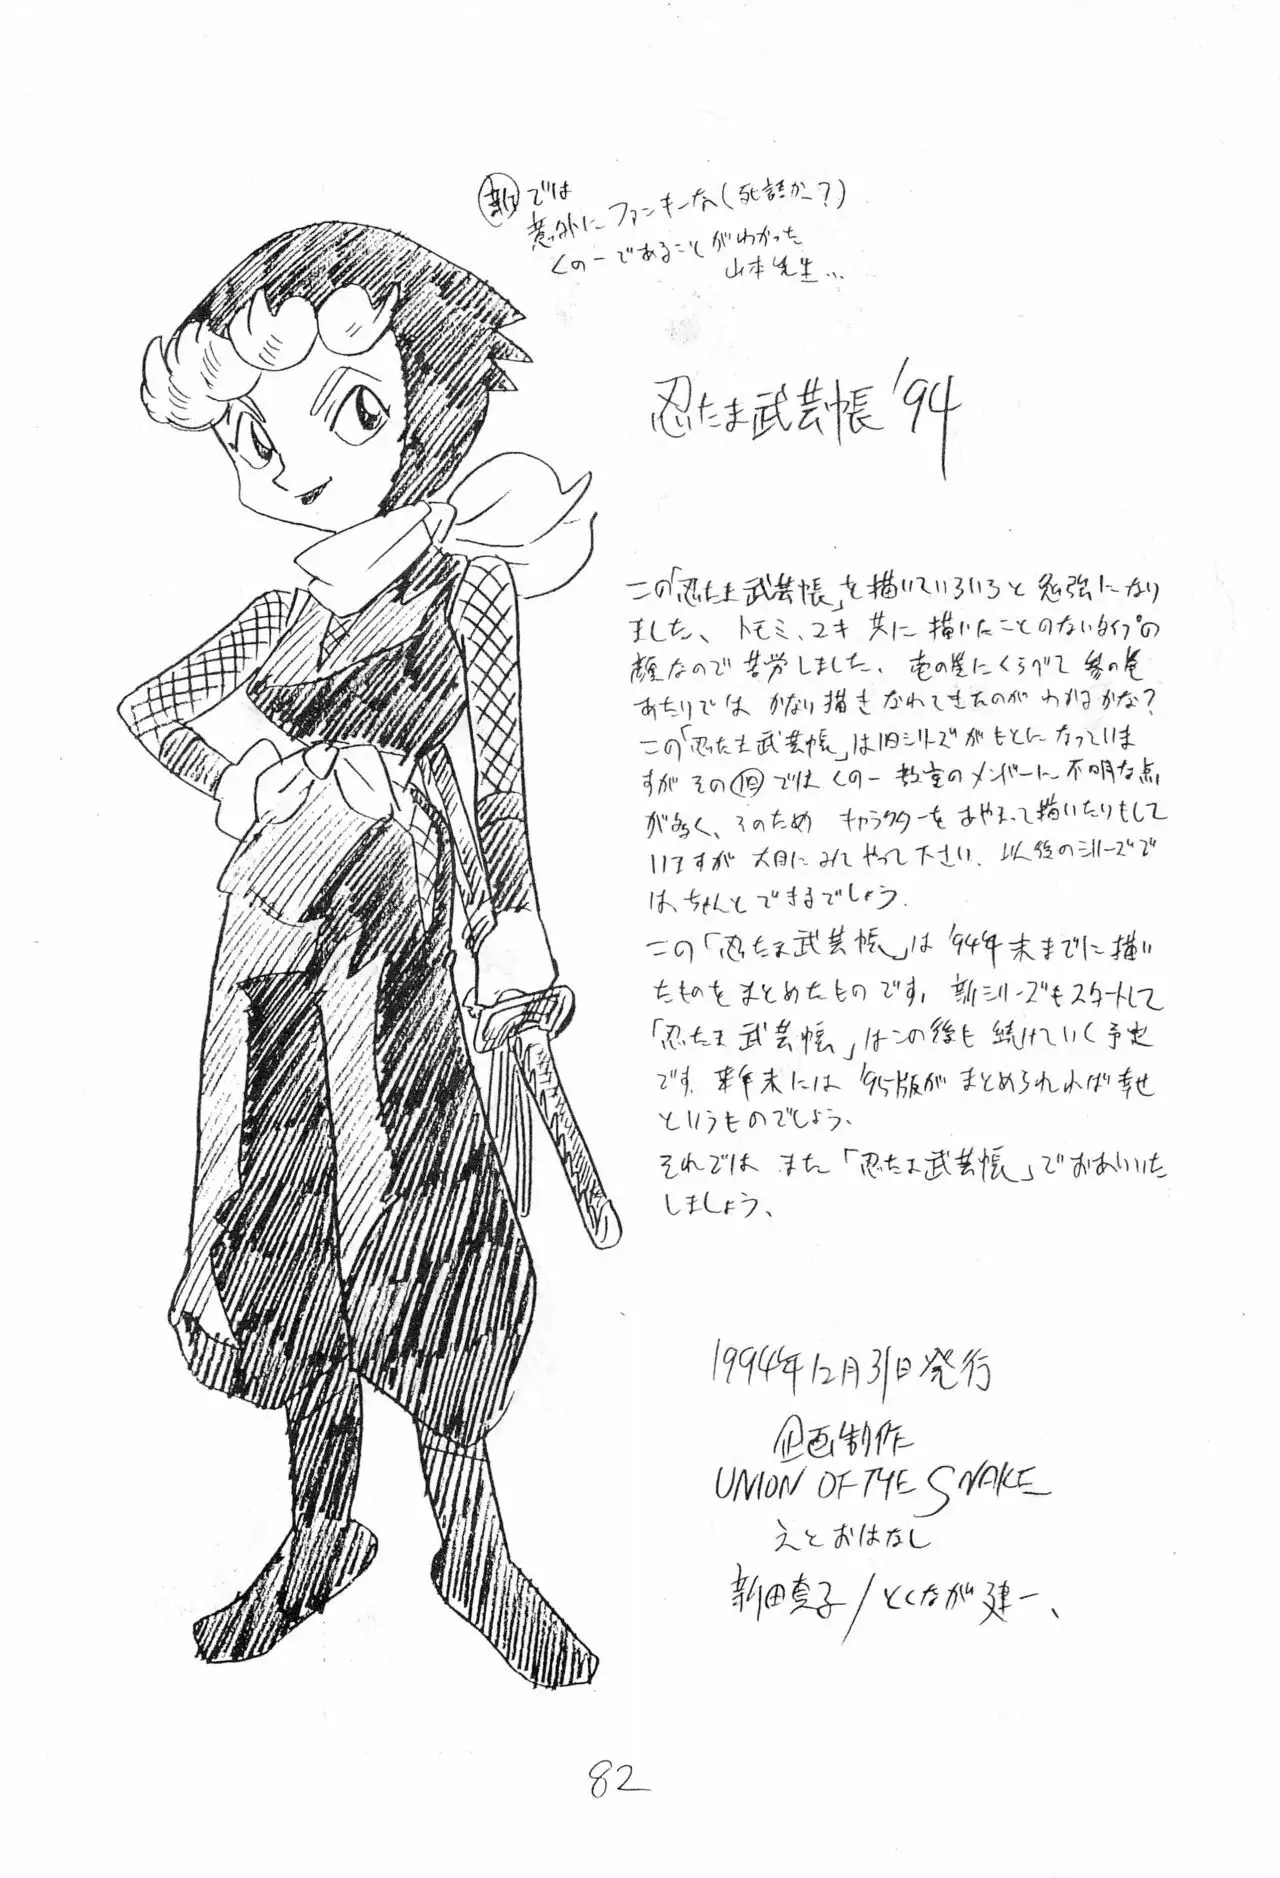 新では
意外にファンキーな(死語かー?)
くの一であることがわかった
山本先生…
忍たま武芸帳'94
この「忍たま武芸帳」を描いていろいろと勉強になり
ました、トモミ、ユキ共に描いたことのないタイプの
顔なので苦労しました、竜の巻にくらべて
あたりではかなり描きなれてきたのがわかるかな?
この「忍たま武芸帳」は旧シリーズがもとになっていま
すがその旧ではくの一教室のメンバーに不明な点
が多く、そのためキャラクターをあやまって描いたりもして
いますが大目にみてやって下さい、以後のシリーズで
はちゃんとできるでしょう.
この「忍たま武芸帳」は'94年末までに描い
たものをまとめたものです、新シリーズもスタートして
「忍たま武芸帳」はこの後も続けていく予定
です、来年末には'95版がまとめられれば幸せ
というものでしょう、
それではまた「忍たま武芸帳」でおあいいた
しましょう、
1994年12月31日発行
企画制作
UNION OF THE SNAKE
えとおはなし
新田真子/とくなが建一、
82